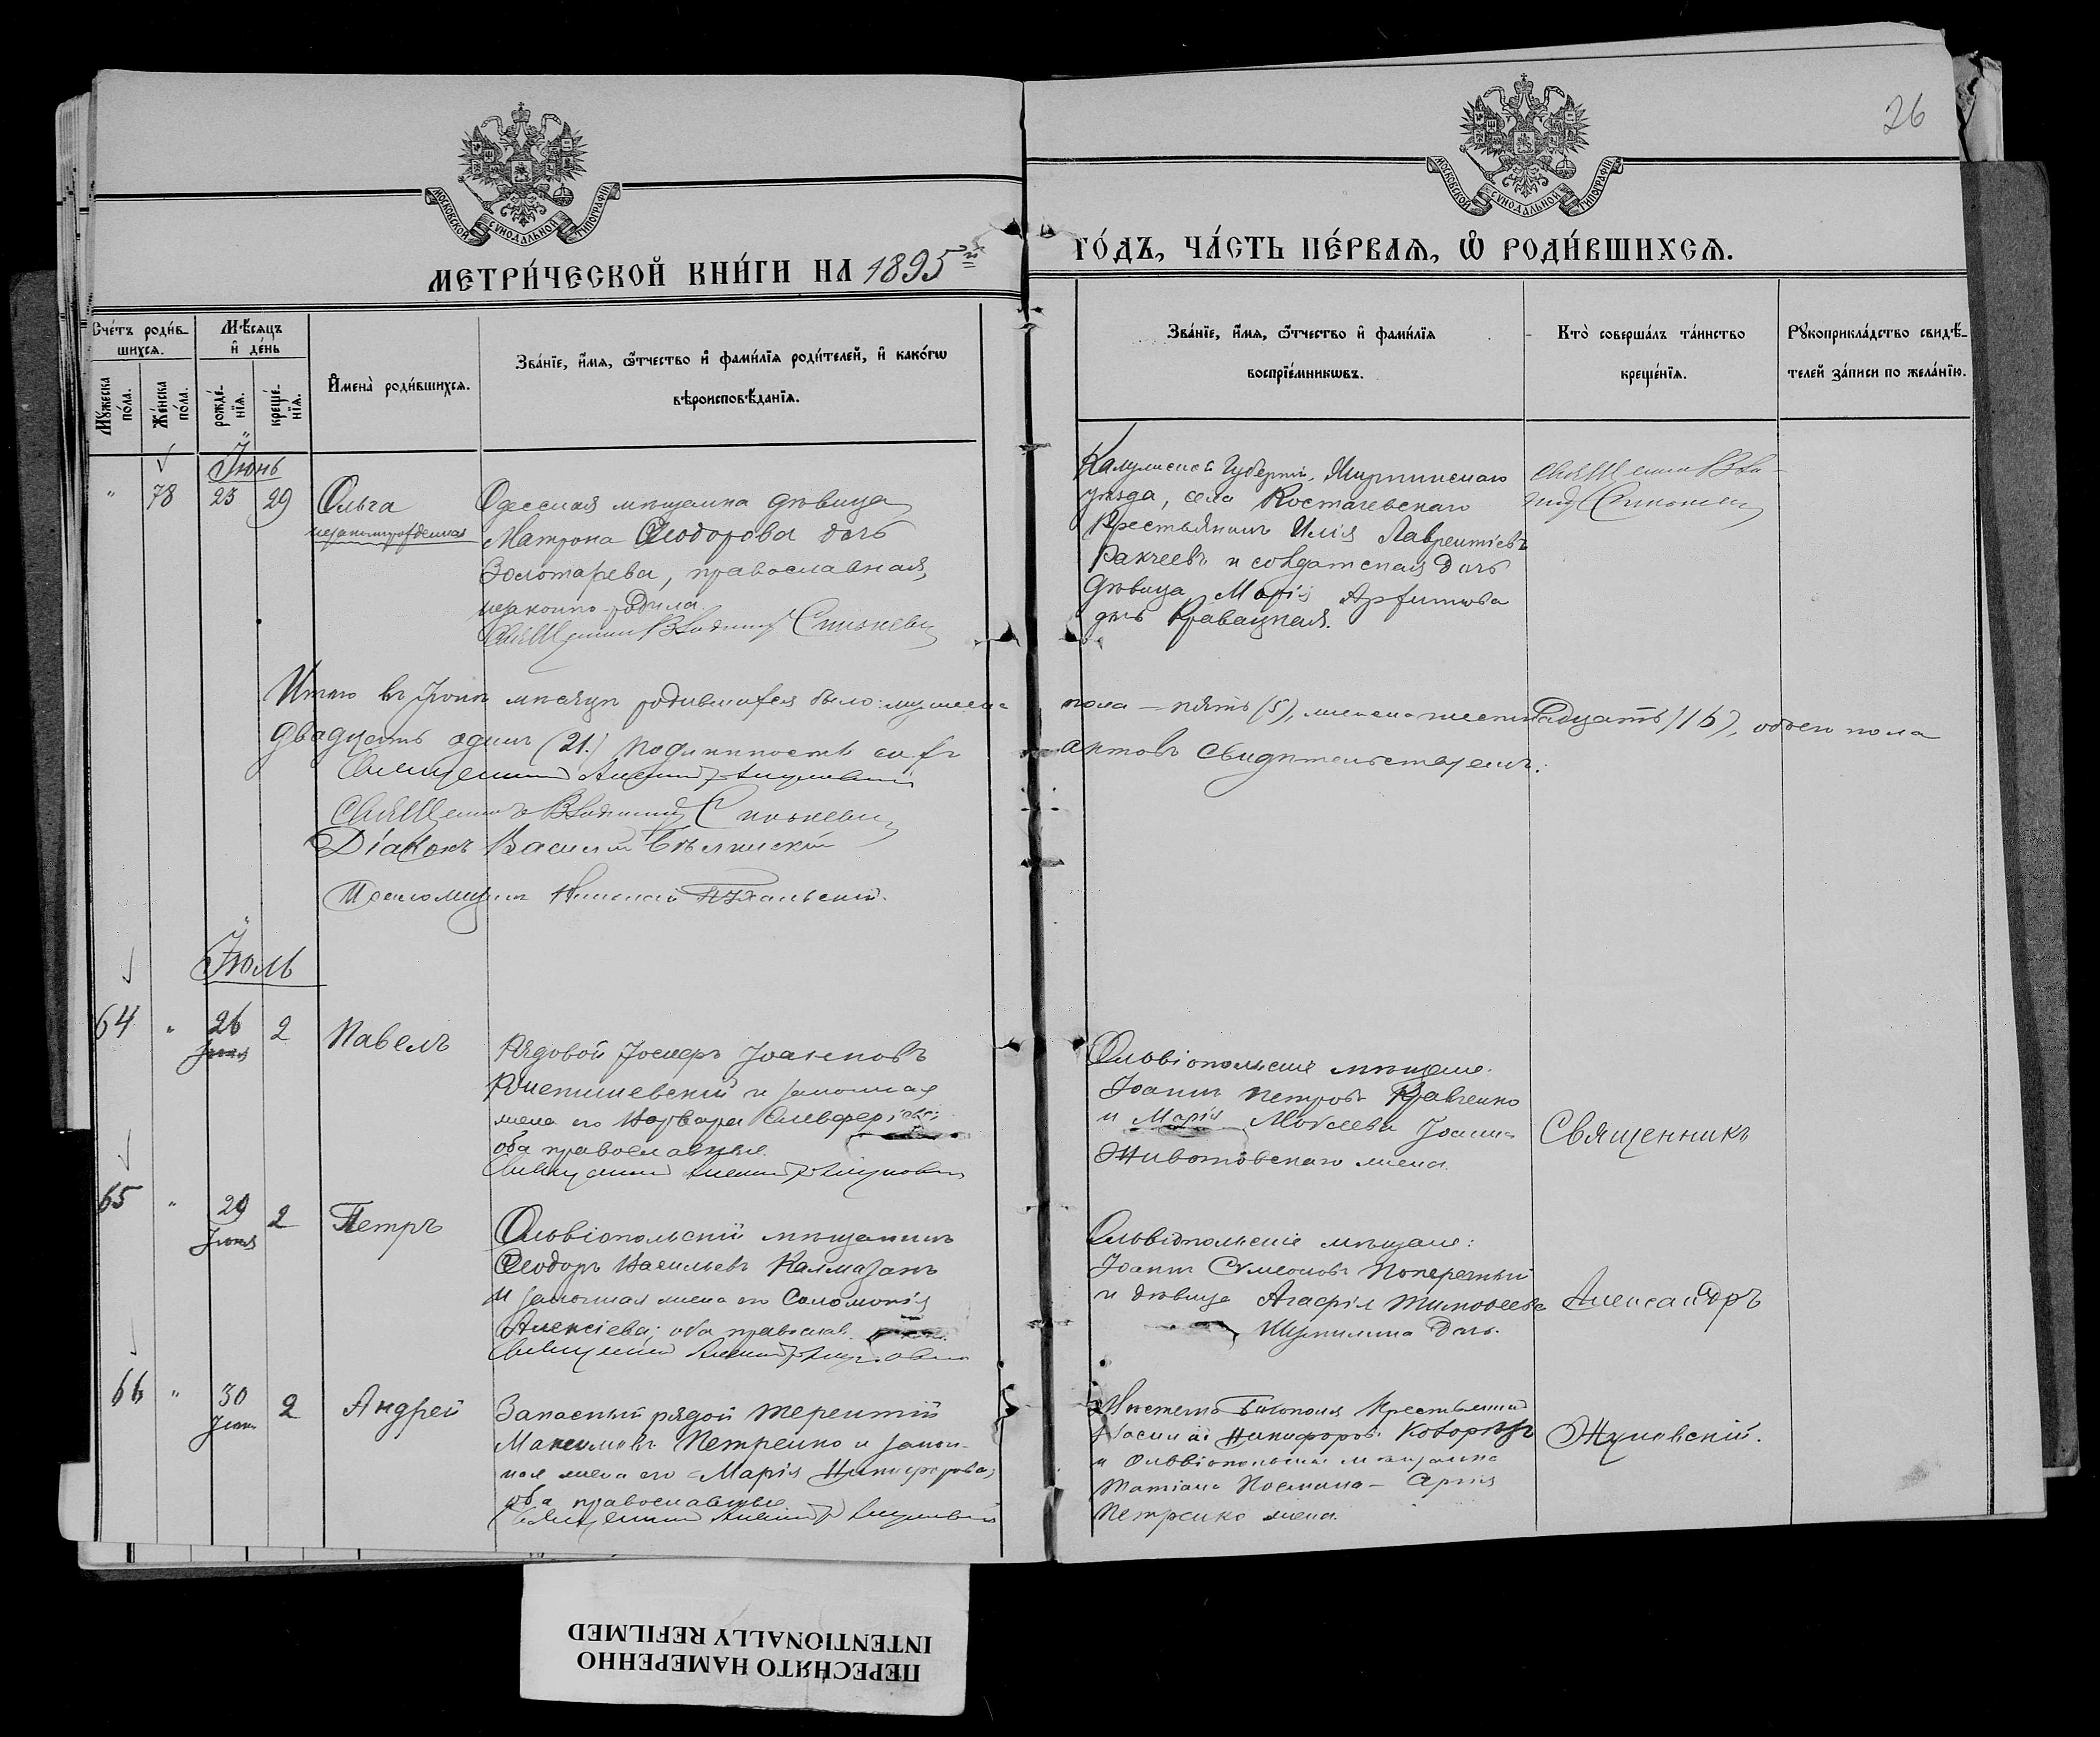 26
МОСКОВСКОЙ СѴНОДАЛЬНОЙ ТИПОГРАФІИ
МОСКОВСКОЙ СѴНОДАЛЬНОЙ ТИПОГРАФІИ
МЕТРИ́ЧЕСКОЙ КНИ́ГИ НА 1895й ГО́ДЪ, ЧА́СТЬ ПЕ́РВАЯ, Ѡ РОДИ́ВШИХСЯ.
Сче́тъ роди́в-
шихся.
Мꙋ́жеска по́ла.
Же́нска по́ла.
Мѣ́сяцъ и де́нь
рожде́-нїя.
креще́-нїя.
И҆мена̀ роди́вшихся.
Зва́нїе, и҆́мя, ѻ҆́тчество и҆ фами́лїя роди́телей, и҆ како́гѡ
вѣроисповѣ́данїя.
Зва́нїе, и҆́мя, ѻ҆́тчество и҆ фами́лїя
воспрїе́мникѡвъ.
Кто̀ соверша́лъ та́инство
креще́нїя.
Рꙋкоприкла́дство свидѣ́-
телей за́писи по жела́нїю.
Іюнь
" 78 23 29 Ольга
незаконнорожденная
Одесская мѣщанка дѣвица
Матрона Ѳеодорова дочь
Золотарева, православная,
незаконно-родила.
Калужской Губерніи,
уѣзда, села
Крестьянинъ Илія Лаврентіевъ
Ракчеевъ и солдатская дочь
дѣвица Марія
дочь
Священникъ
Итого въ Іюнѣ мѣсяцѣ родившихся было: мужеска пола — пять (5), женска шестнадцать (16), обоего пола
двадцать одинъ (21.) Подлинность сихъ актовъ свидѣтельствуемъ:
Священникъ Александръ Жуковскій
Священникъ
Діаконъ Василій
Псаломщикъ
Іюль
64 " 26 2 Павелъ
Іюня
Рядовой Іосифъ Іоакимовъ
и законная
жена его Варвара
оба православные.
Священникъ Александръ Жуковскій
Ольвіопольскіе мѣщане:
Іоаннъ Петровъ Кравченко
и Марія Моѵсеева Іоанна
Животовскаго жена.
Священникъ
65 " 29 2 Петръ
Іюня
Ольвіопольскій мѣщанинъ
Ѳеодоръ Васильевъ Калмазанъ
и законная жена его Соломонія
Алексіева; оба православ.
Священникъ Александръ Жуковскій
Ольвіопольскіе мѣщане:
Іоаннъ Сѵмеоновъ Поперечный
и дѣвица Агафія Тимоѳеева
дочь.
Александръ
66 " 30 2 Андрей
Іюня
Запасный рядовой Терентій
Максимовъ Петренко и закон-
ная жена его Марія Никифорова,
оба православные.
Священникъ Александръ Жуковскій
Мѣстечка крестьянинъ
Василій Никифоровъ
и Ольвіопольская мѣщанка
Татіана
Петренко жена.
Жуковскій.
ПЕРЕСНЯТО НАМЕРЕННО
INTENTIONALLY REFILMED